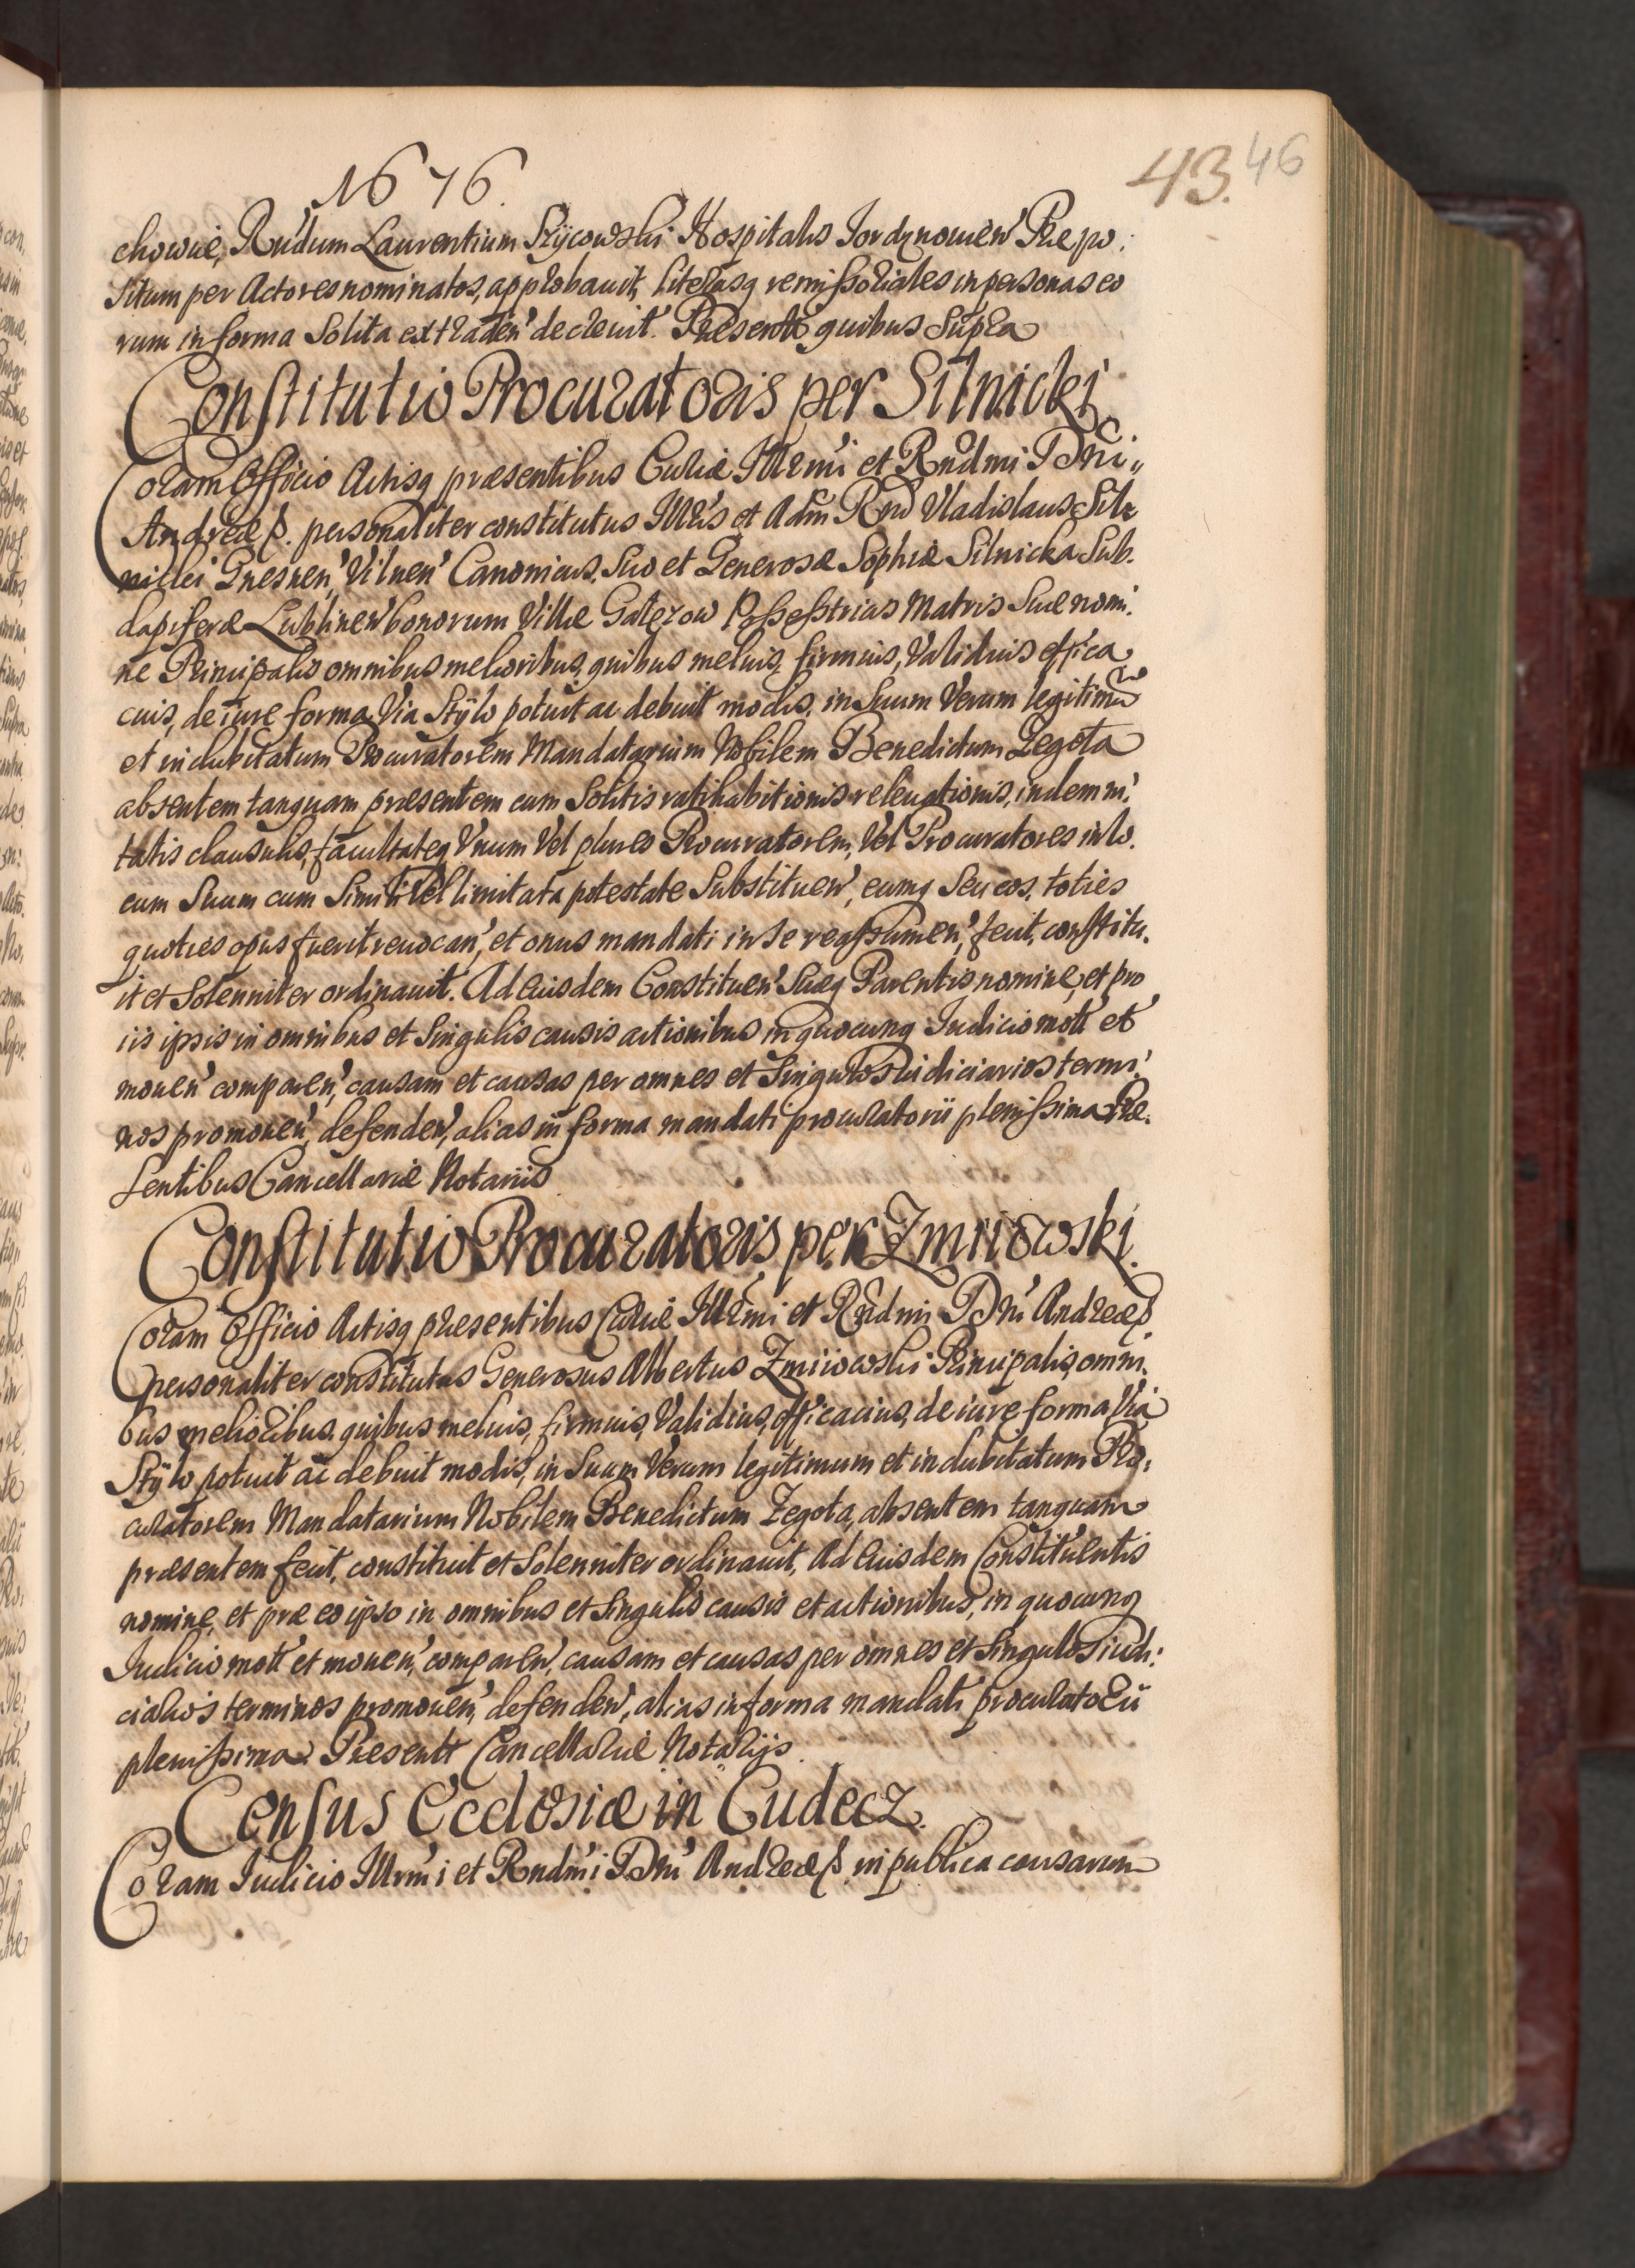 1676.
43. 46
chowie, Rndum Laurentium Szycowski Hospitalis Jordznowien Præpo:
situm per Actores nominatos, approbauit, literasq remissoriales in personas eo
rum in forma solita extraden decreuit. Præsentt quibus supra
Constitutio Procuratoris per Silnicki
Coram Officio Actisq præsentibus Curiæ Illrmi et Rndmi Dni
Andreæ p. personaliter constitutus Illris et Adm Rnd Vladislaus Sil
nicki Gnesnen, Vilnen Canonicus, Suo et Generosæ Sophiæ Silnicka Sub.
dapiferæ Lublinen bonorum Villæ Gatezow Possestrias Matris Suæ nomi:
ne Principalis omnibus melioribus, quibus melius, firmius, Validius effica
cius, de iure forma Via Stÿlo potuit ac debuit modis, in Suum Verum legitimū
et indubitatum Procuratorem Mandatarium Nobilem Benedictum Zegota
absentem tanquam præsentem cum Solitis ratihabitionis releuationis, indemni:
tatis clausulis, facultateq Vnum Vel plures Procuratorem, Vel Procuratores in lo.
cum Suum cum Simili Vel limitata potestate Substituen, eumq Seu eos, toties
quoties opus fuerit reuocan, et onus mandati in se reassumen, fecit, constitu.
it et Solenniter ordinauit. Ad Eiusdem Constituen Suæq Parentis nomine, et pro
iis ipsis in omnibus et Singulis causis actionibus in quocunq Iudicio mott et
mouen comparen, causam et causas per omnes et Singulos Iudiciarios termi:
nos promouen, defenden, alias in forma mandati procuratorii plenissima Præ.
sentibus Cancellariæ Notariis
Constitutio Procuratoris per Zmiiowski.
Coram Officio Actisq præsentibus Curiæ Illrmi et Rndmi Dni Andreæ p.
personaliter constitutus Generosus Albertus Zmiiowski Principalis, omni.
bus melioribus, quibus melius, firmius, Validius, efficacius, de iure forma Via
Stÿlo potuit ac debuit modis, in Suum Verum legitimum et indubitatum Pro:
curatorem Mandatarium Nobilem Benedictum Zegota, absentem tanquam
præsentem fecit, constituit et Solenniter ordinauit, Ad Eiusdem Constituentis
nomine, et præ eo ipso in omnibus et Singulis causis et actionibus, in quocunq
Iudicio mott et mouen, comparen, causam et causas per omnes et Singulos iudi:
ciarios terminos promouen, defenden, alias in forma mandati procuratorii
plenissima. Præsentt Cancellariæ Notarijs.
Census Ecclesiæ in Cudecz.
Coram Iudicio Illrmi et Rndmi Dni Andreæ p. in publica causarum